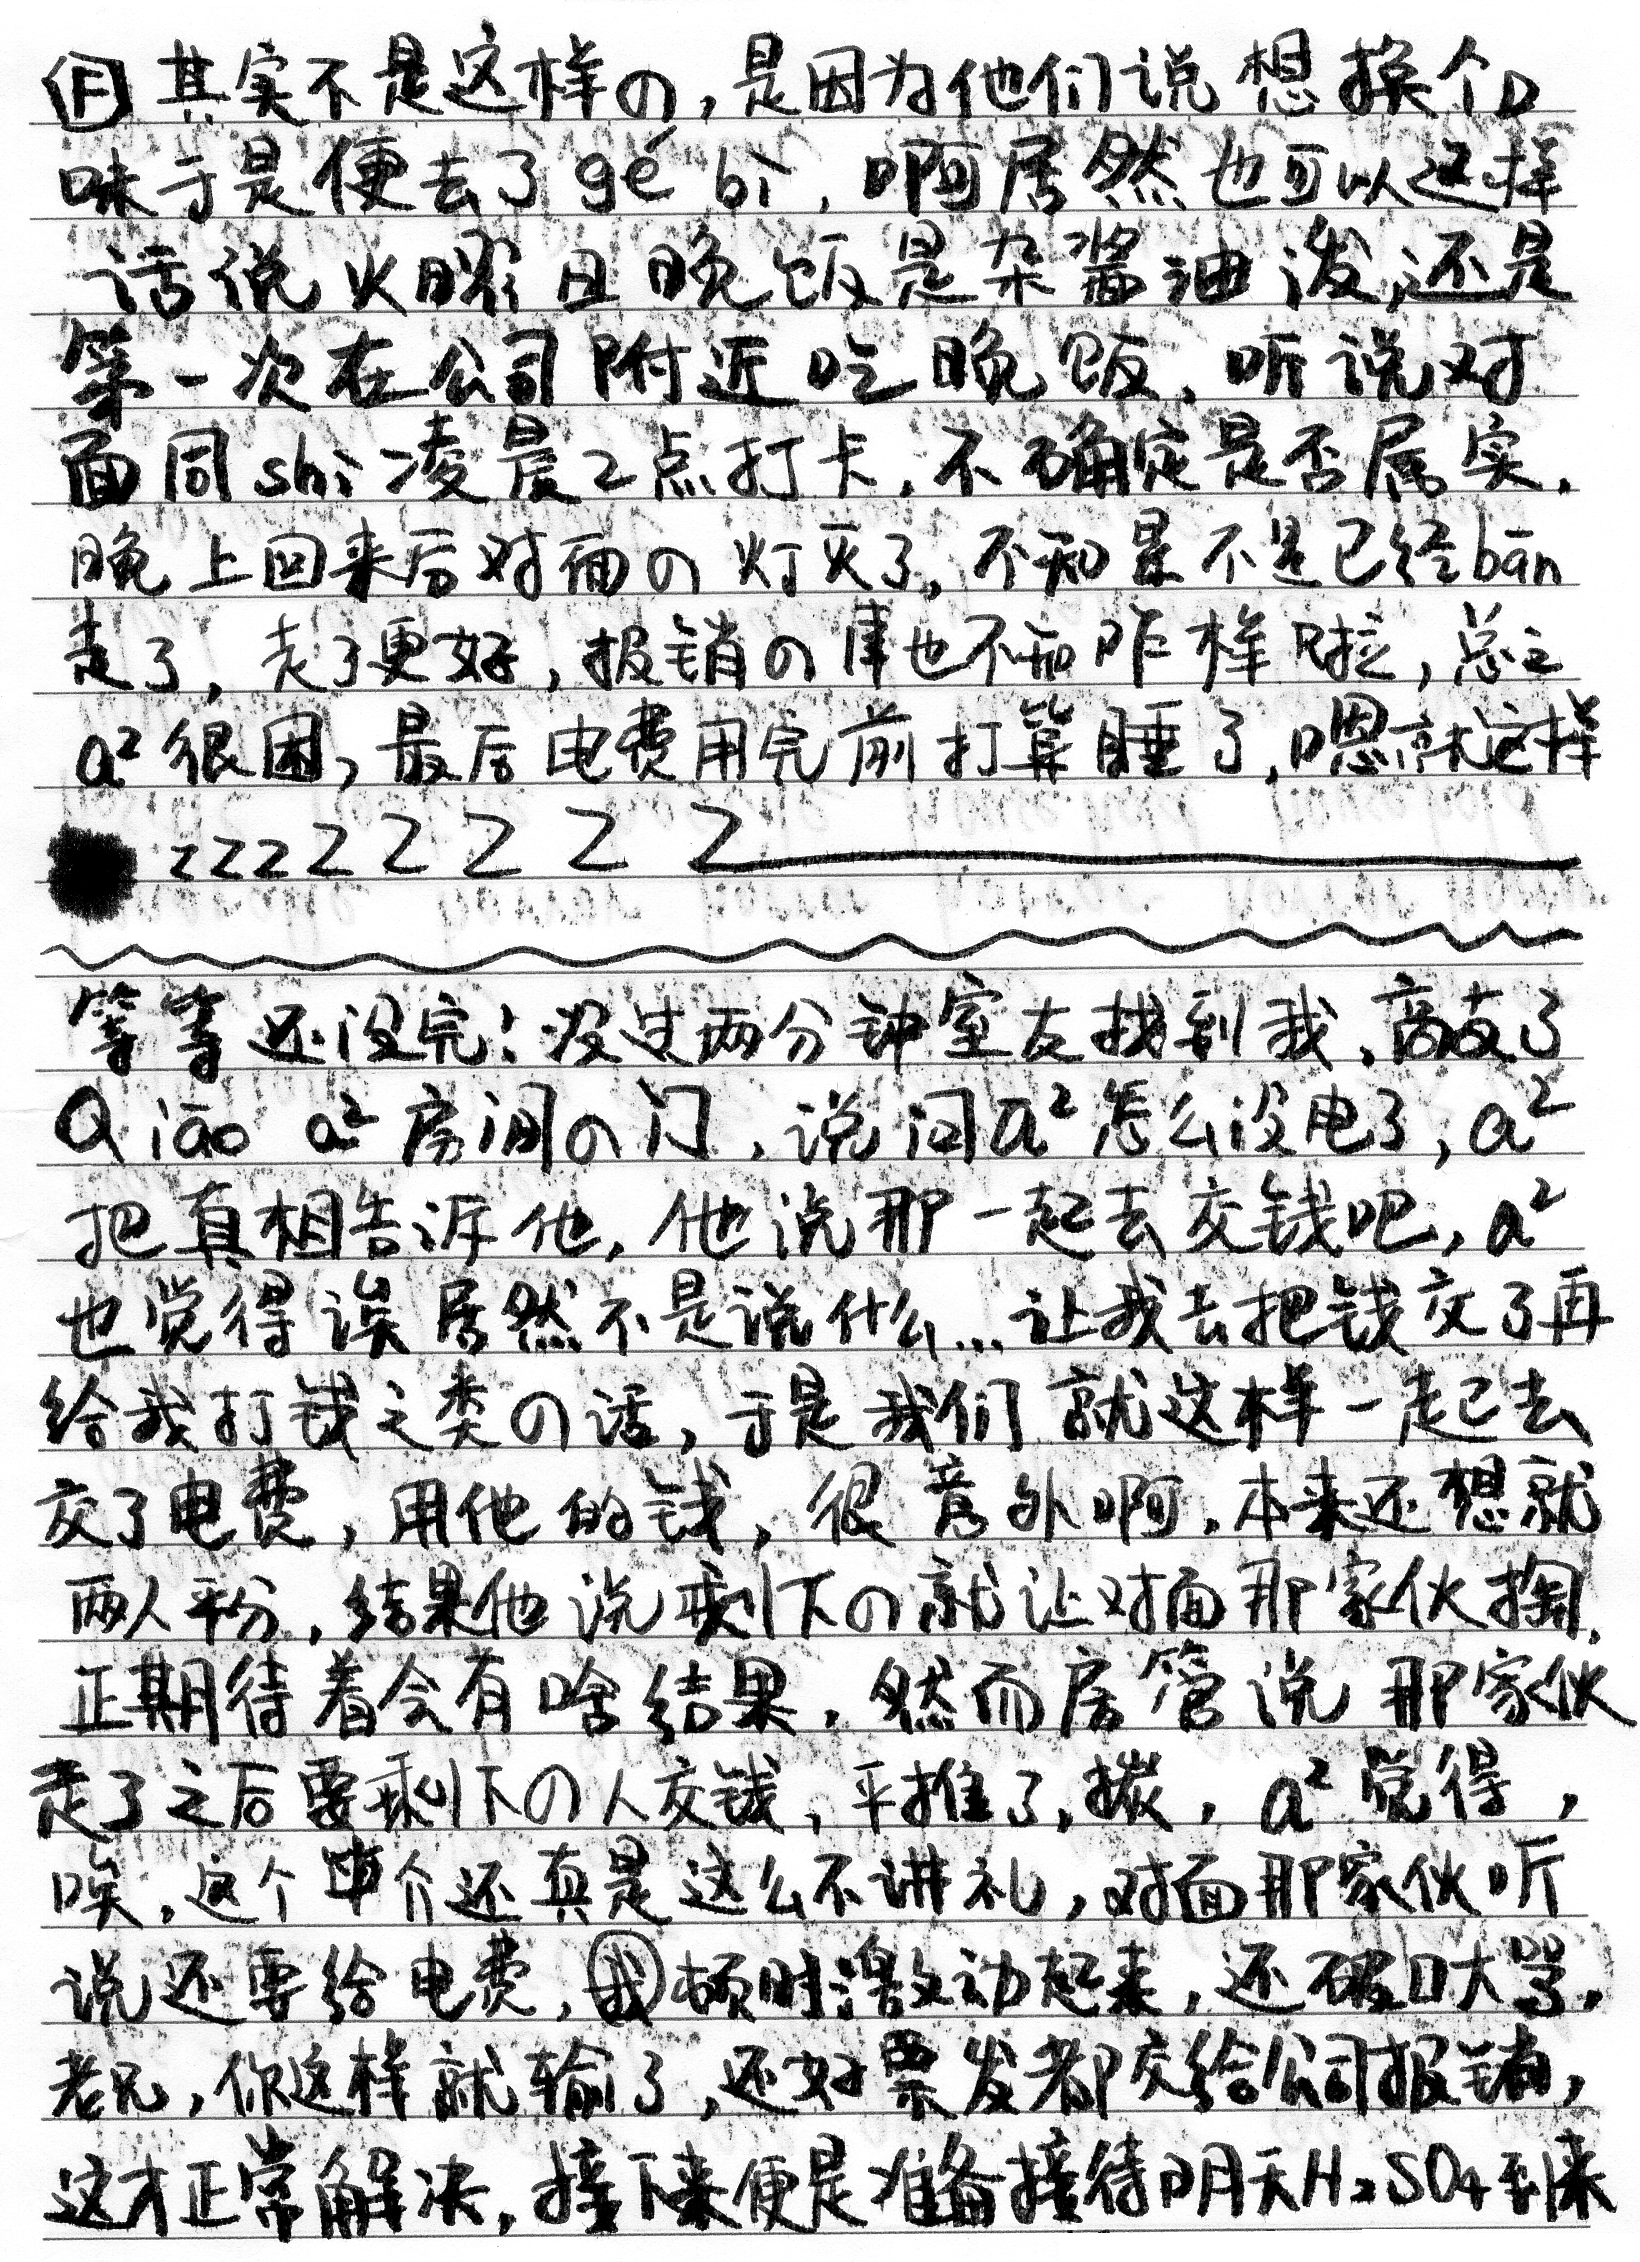 F 其实不是这样の,是因为他们说想换个口
味于是便去了gé bì,啊居然也可以这样
话说 且晚饭是杂酱油泼,还是
第一次在公司附近吃晚饭,听说对
面同shì凌晨2点打卡,不确定是否属实.
晚上回来后对面の灯灭了,不知是不是已经bān
走了,走了更好,报销の事也不知咋样啦,总之
a²很困,最后电费用完前打算睡了,嗯就这样
zzzzZZZZZ
等等还没完!没过两分钟室友找到我, 了
Qiāo a²房间の门,说问a²怎么没电了,a²
把真相告诉他,他说那一起去交钱吧,a²
也觉得诶居然不是说什么...让我去把钱交了再
给我打钱之类の话,于是我们就这样一起去
交了电费,用他的钱,很意外啊.本来还想就
两人平分,结果他说剩下の就让对面那家伙掏.
正期待着会有啥结果,然而房管说那家伙
走了之后要剩下の人交钱,平推了,摆,a²觉得,
唉,这个中介还真是这么不讲礼,对面那家伙听
说还要给电费,我顿时激动起来,还破口大骂,
老兄,你这样就输了,还好票发都交给公司报销,
这才正常解决,接下来便是准备接待阴天H₂SO₄到来